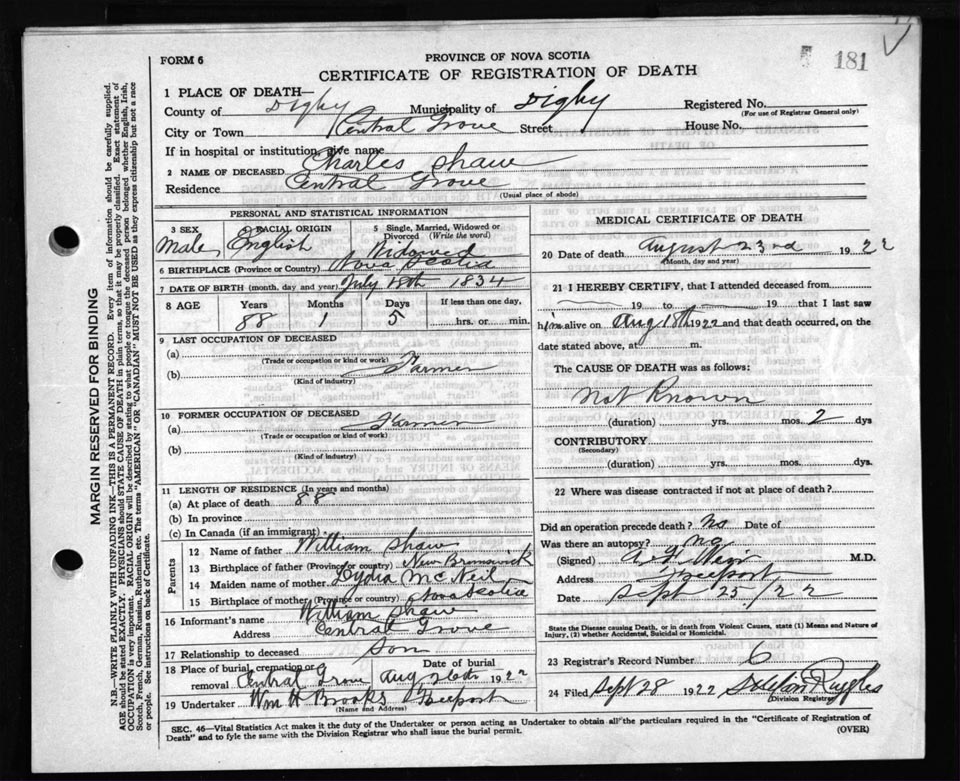 181
FORM 6
PROVINCE OF NOVA SCOTIA
CERTIFICATE OF REGISTRATION OF DEATH
1 PLACE OF DEATH—
County of Digby Municipality of Digby Registered No.
(For use of Registrar General only)
City or Town Central Grove Street House No.
If in hospital or institution, give name
2 NAME OF DECEASED Charles Shaw
Residence Central Grove
(Usual place of abode)
PERSONAL AND STATISTICAL INFORMATION
3 SEX RACIAL ORIGIN 5 Single, Married, Widowed or Divorced (Write the word)
Male English Widowed
6 BIRTHPLACE (Province or Country) Nova Scotia
7 DATE OF BIRTH (month, day and year) July 18th 1834
8 AGE Years Months Days If less than one day,
88 1 5 hrs. or min.
9 LAST OCCUPATION OF DECEASED
(a)
(Trade or occupation or kind or work)
(b) Farmer
(Kind of industry)
10 FORMER OCCUPATION OF DECEASED
(a) Farmer
(Trade or occupation or kind of work)
(b)
(Kind of industry)
11 LENGTH OF RESIDENCE (In years and months)
(a) At place of death 88
(b) In province
(c) In Canada (if an immigrant)
Parents
12 Name of father William Shaw
13 Birthplace of father (Province or country) New Brunswick
14 Maiden name of mother Lydia McNeil
15 Birthplace of mother (Province or country) Nova Scotia
16 Informant's name William Shaw
Address Central Grove
17 Relationship to deceased Son
18 Place of burial, cremation or removal Central Grove Date of burial Aug 26th 1922
19 Undertaker Wm H Brooks Freeport
(Name and Address)
MEDICAL CERTIFICATE OF DEATH
20 Date of death August 23rd 1922
(Month, day and year)
21 I HEREBY CERTIFY, that I attended deceased from
19 to 19 that I last saw
him alive on Aug 18th 1922 and that death occurred, on
date stated above, at m.
The CAUSE OF DEATH was as follows:
Not Known
(duration) yrs. mos. 2 dys
CONTRIBUTORY
(Secondary)
(duration) yrs. mos. dys.
22 Where was disease contracted if not at place of death?
Did an operation precede death? No Date of
Was there an autopsy? no
(Signed) M.D.
Address Freeport
Date Sept 25/22
State the Disease causing Death, or in death from Violent Causes, state (1) Means and Nature of
Injury, (2) whether Accidental, Suicidal or Homicidal.
23 Registrar's Record Number 6
24 Filed Sept 28 1922 Ruggles
(Division Registrar)
SEC. 46—Vital Statistics Act makes it the duty of the Undertaker or person acting as Undertaker to obtain all the particulars required in the "Certificate of Registration of
Death" and to fyle the same with the Division Registrar who shall issue the burial permit.
(OVER)
MARGIN RESERVED FOR BINDING
N.B.—WRITE PLAINLY WITH UNFADING INK—THIS IS A PERMANENT RECORD. Every item of information should be carefully supplied.
AGE should be stated EXACTLY. PHYSICIANS should STATE CAUSE OF DEATH in plain terms, so that it may be properly classified. Exact statement of
OCCUPATION is very important. RACIAL ORIGIN will be described by stating to what people or tongue the deceased person belonged whether English, Irish,
Scotch, French, German, Russian, Ruthenian, etc. The terms "AMERICAN" OR "CANADIAN" MUST NOT BE USED as they express citizenship but not a race
or people. See instructions on back of Certificate.